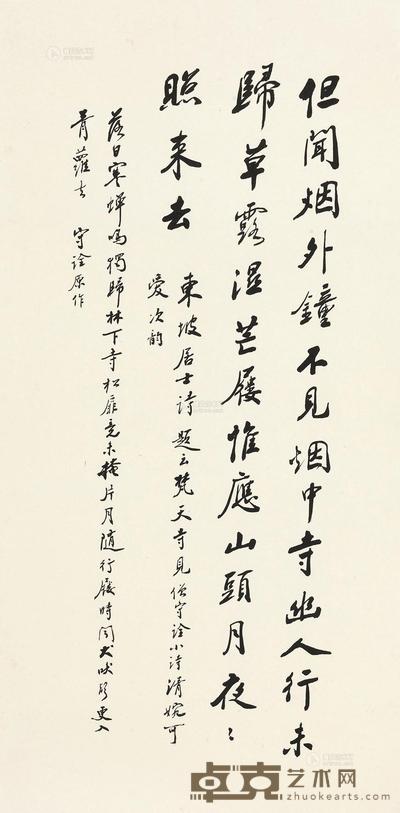 但聞烟外鐘不見烟中寺幽人行未
歸草露湿芒屨惟應山頭月夜〻
照来去
東坡居士詩題云梵天寺見僧守詮小詩清婉可
愛次韵
落日寒蝉鳴獨歸林下寺松扉竟未掩片月随行屨時聞犬吠聲更入
青蘿去 守詮原作
卓克艺术网
zhuokearts.com